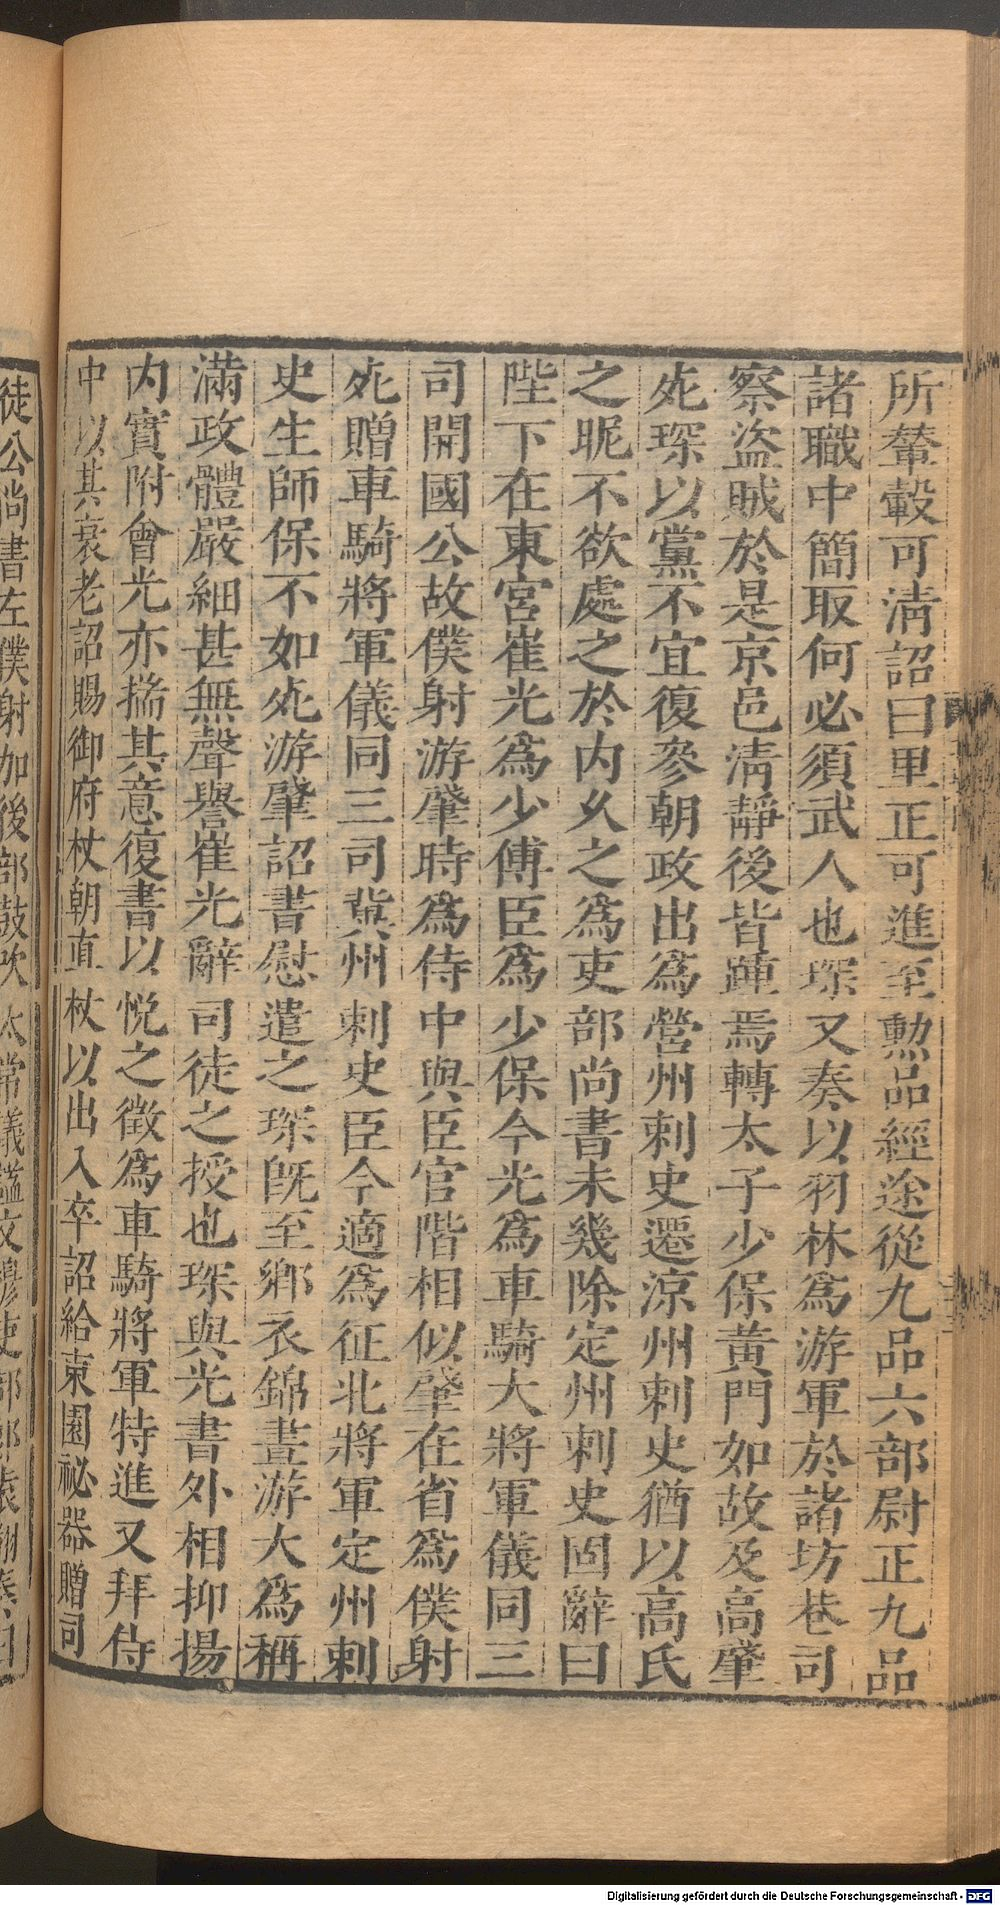 所輦轂可淸詔曰里正可進至勲品經途從九品六部尉正九品
諸職中簡取何必須武人也琛又奏以羽林爲游軍於諸坊巷司
察盜賊於是京邑淸靜後皆踵焉轉太子少保黃門如故及高肇
死琛以黨不宜復參朝政出爲營州刺史遷涼州刺史猶以高氏
之昵不欲處之於内久之爲吏部尚書未幾除定州刺史固辭曰
陛下在東宮崔光爲少傅臣爲少保今光爲車騎大將軍儀同三
司開國公故僕射游肇時爲侍中與臣官階相似肇在省爲僕射
死贈車騎將軍儀同三司冀州刺史臣今適爲征北將軍定州刺
史生師保不如死游肇詔書慰遣之琛旣至鄉衣錦晝游大爲稱
滿政體嚴細甚無聲譽崔光辭司徒之授也琛與光書外相抑揚
内實附會光亦揣其意復書以悅之徵爲車騎將軍特進又拜侍
中以其衰老詔賜御府杖朝直杖以出入卒詔給東園祕器贈司
徒公尚書左僕射加後部鼓吹太常議謚文穆吏部郎袁翻奏曰
Digitalisierung gefördert durch die Deutsche Forschungsgemeinschaft - DFG